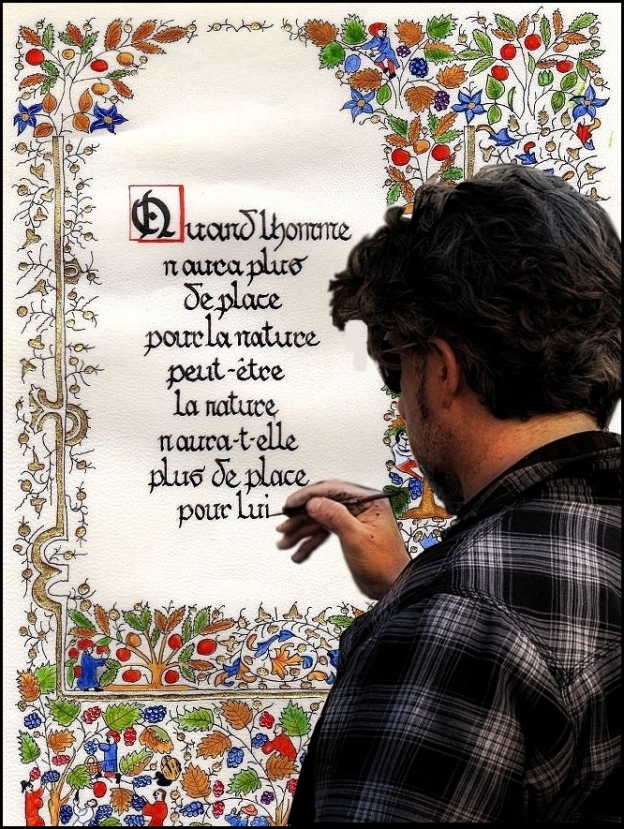 Quand lhomme
naura plus
de place
pour la nature
peut-être
la nature
naura-t-elle
plus de place
pour lui